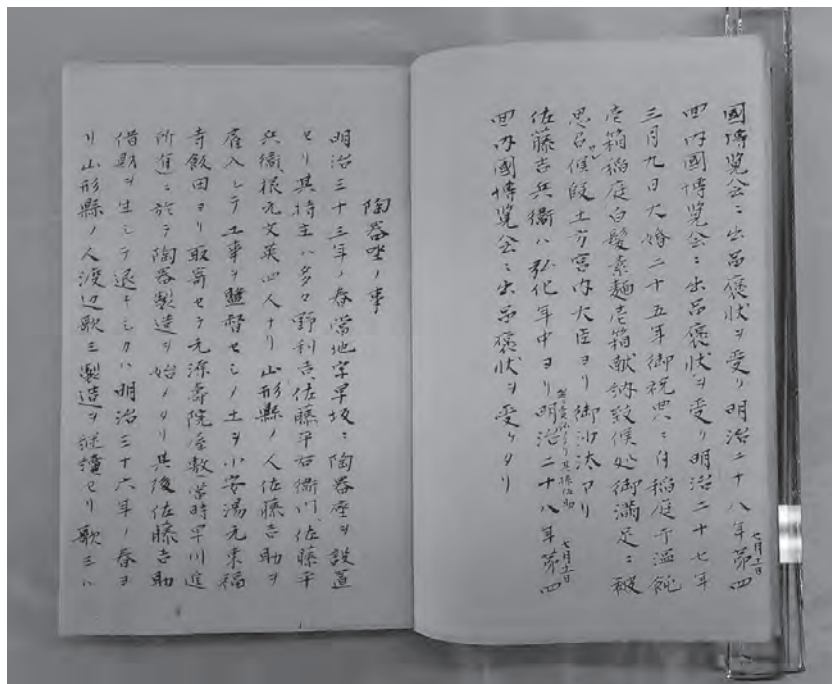 國博覧会ニ出品褒状ヲ受ク明治二十八年第四
七月十一日
回内國博覧会ニ出品褒状ヲ受ク明治二十七年
三月九日大婚二十五年御祝典ニ付稲庭干温飩
壱箱稲庭白髪素麺壱箱献納致候処御満足ニ被
思召候段土方宮内大臣ヨリ御沙汰アリ
佐藤吉兵衛ハ弘化年中ヨリ明治二十八年第四
七月十一日
回内國博覧会ニ出品褒状ヲ受ケタリ
陶器座ノ事
明治三十三年ノ春當地字早坂ニ陶器座ヲ設置
セリ其持主ハ多々野利吉佐藤平右衛門、佐藤平
兵衛根元文英四人ナリ山形縣ノ人佐藤吉助ヲ
雇入レテ工事ヲ監督セシメ土ヲ小安湯元来福
寺飯田ヨリ取寄セテ元源壽院屋敷當時早川進
所有ニ於テ陶器製造ヲ始メタリ其後佐藤吉助
借財ヲ生シテ退キシカハ明治三十六年ノ春ヨ
リ山形縣ノ人渡辺歌三製造ヲ継續セリ歌三ハ